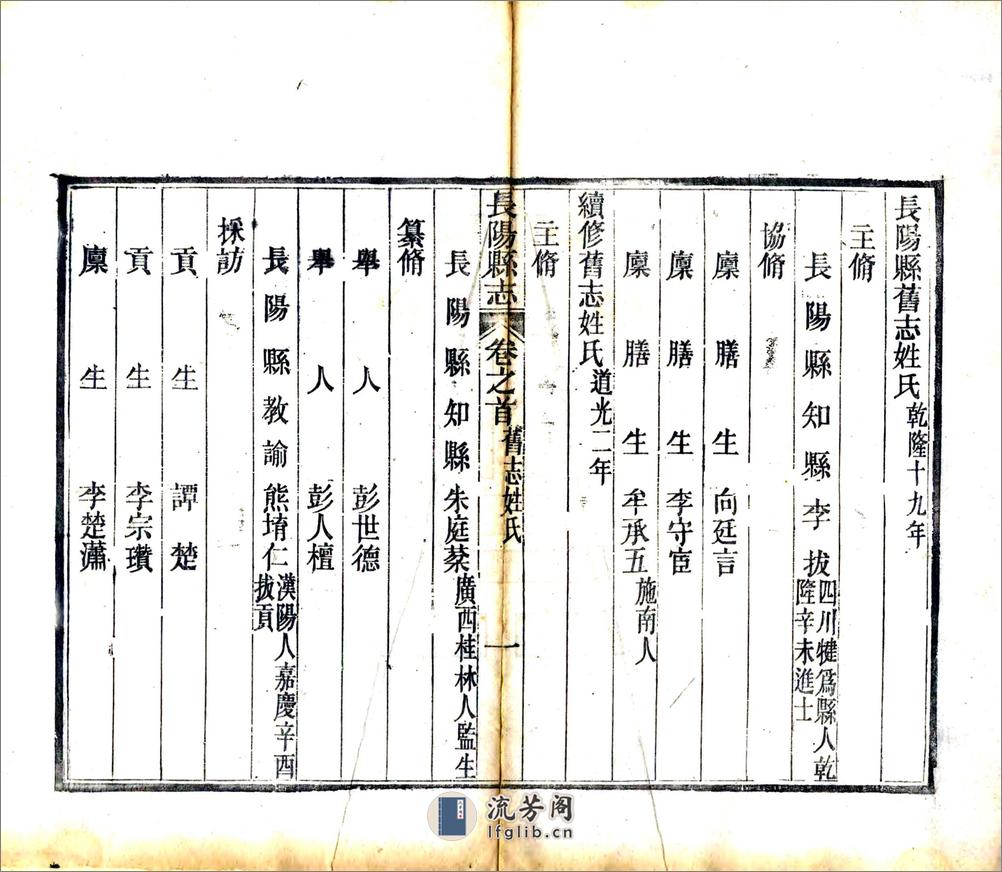 長陽縣舊志姓氏乾隆十九年
主脩
長陽縣知縣李拔四川犍爲縣人乾隆辛未進士
協脩
廩膳生向廷言
廩膳生李守宦
廩膳生牟承五施南人
續修舊志姓氏道光二年
主脩
長陽縣志 卷之首 舊志姓氏 一
長陽縣知縣朱庭棻廣西桂林人監生
纂脩
舉人彭世德
舉人彭人檀
長陽縣教諭熊堉仁漢陽人嘉慶辛酉拔貢
採訪
貢生譚楚
貢生李宗瓚
廩生李楚瀟
流芳阁
lfglib.cn